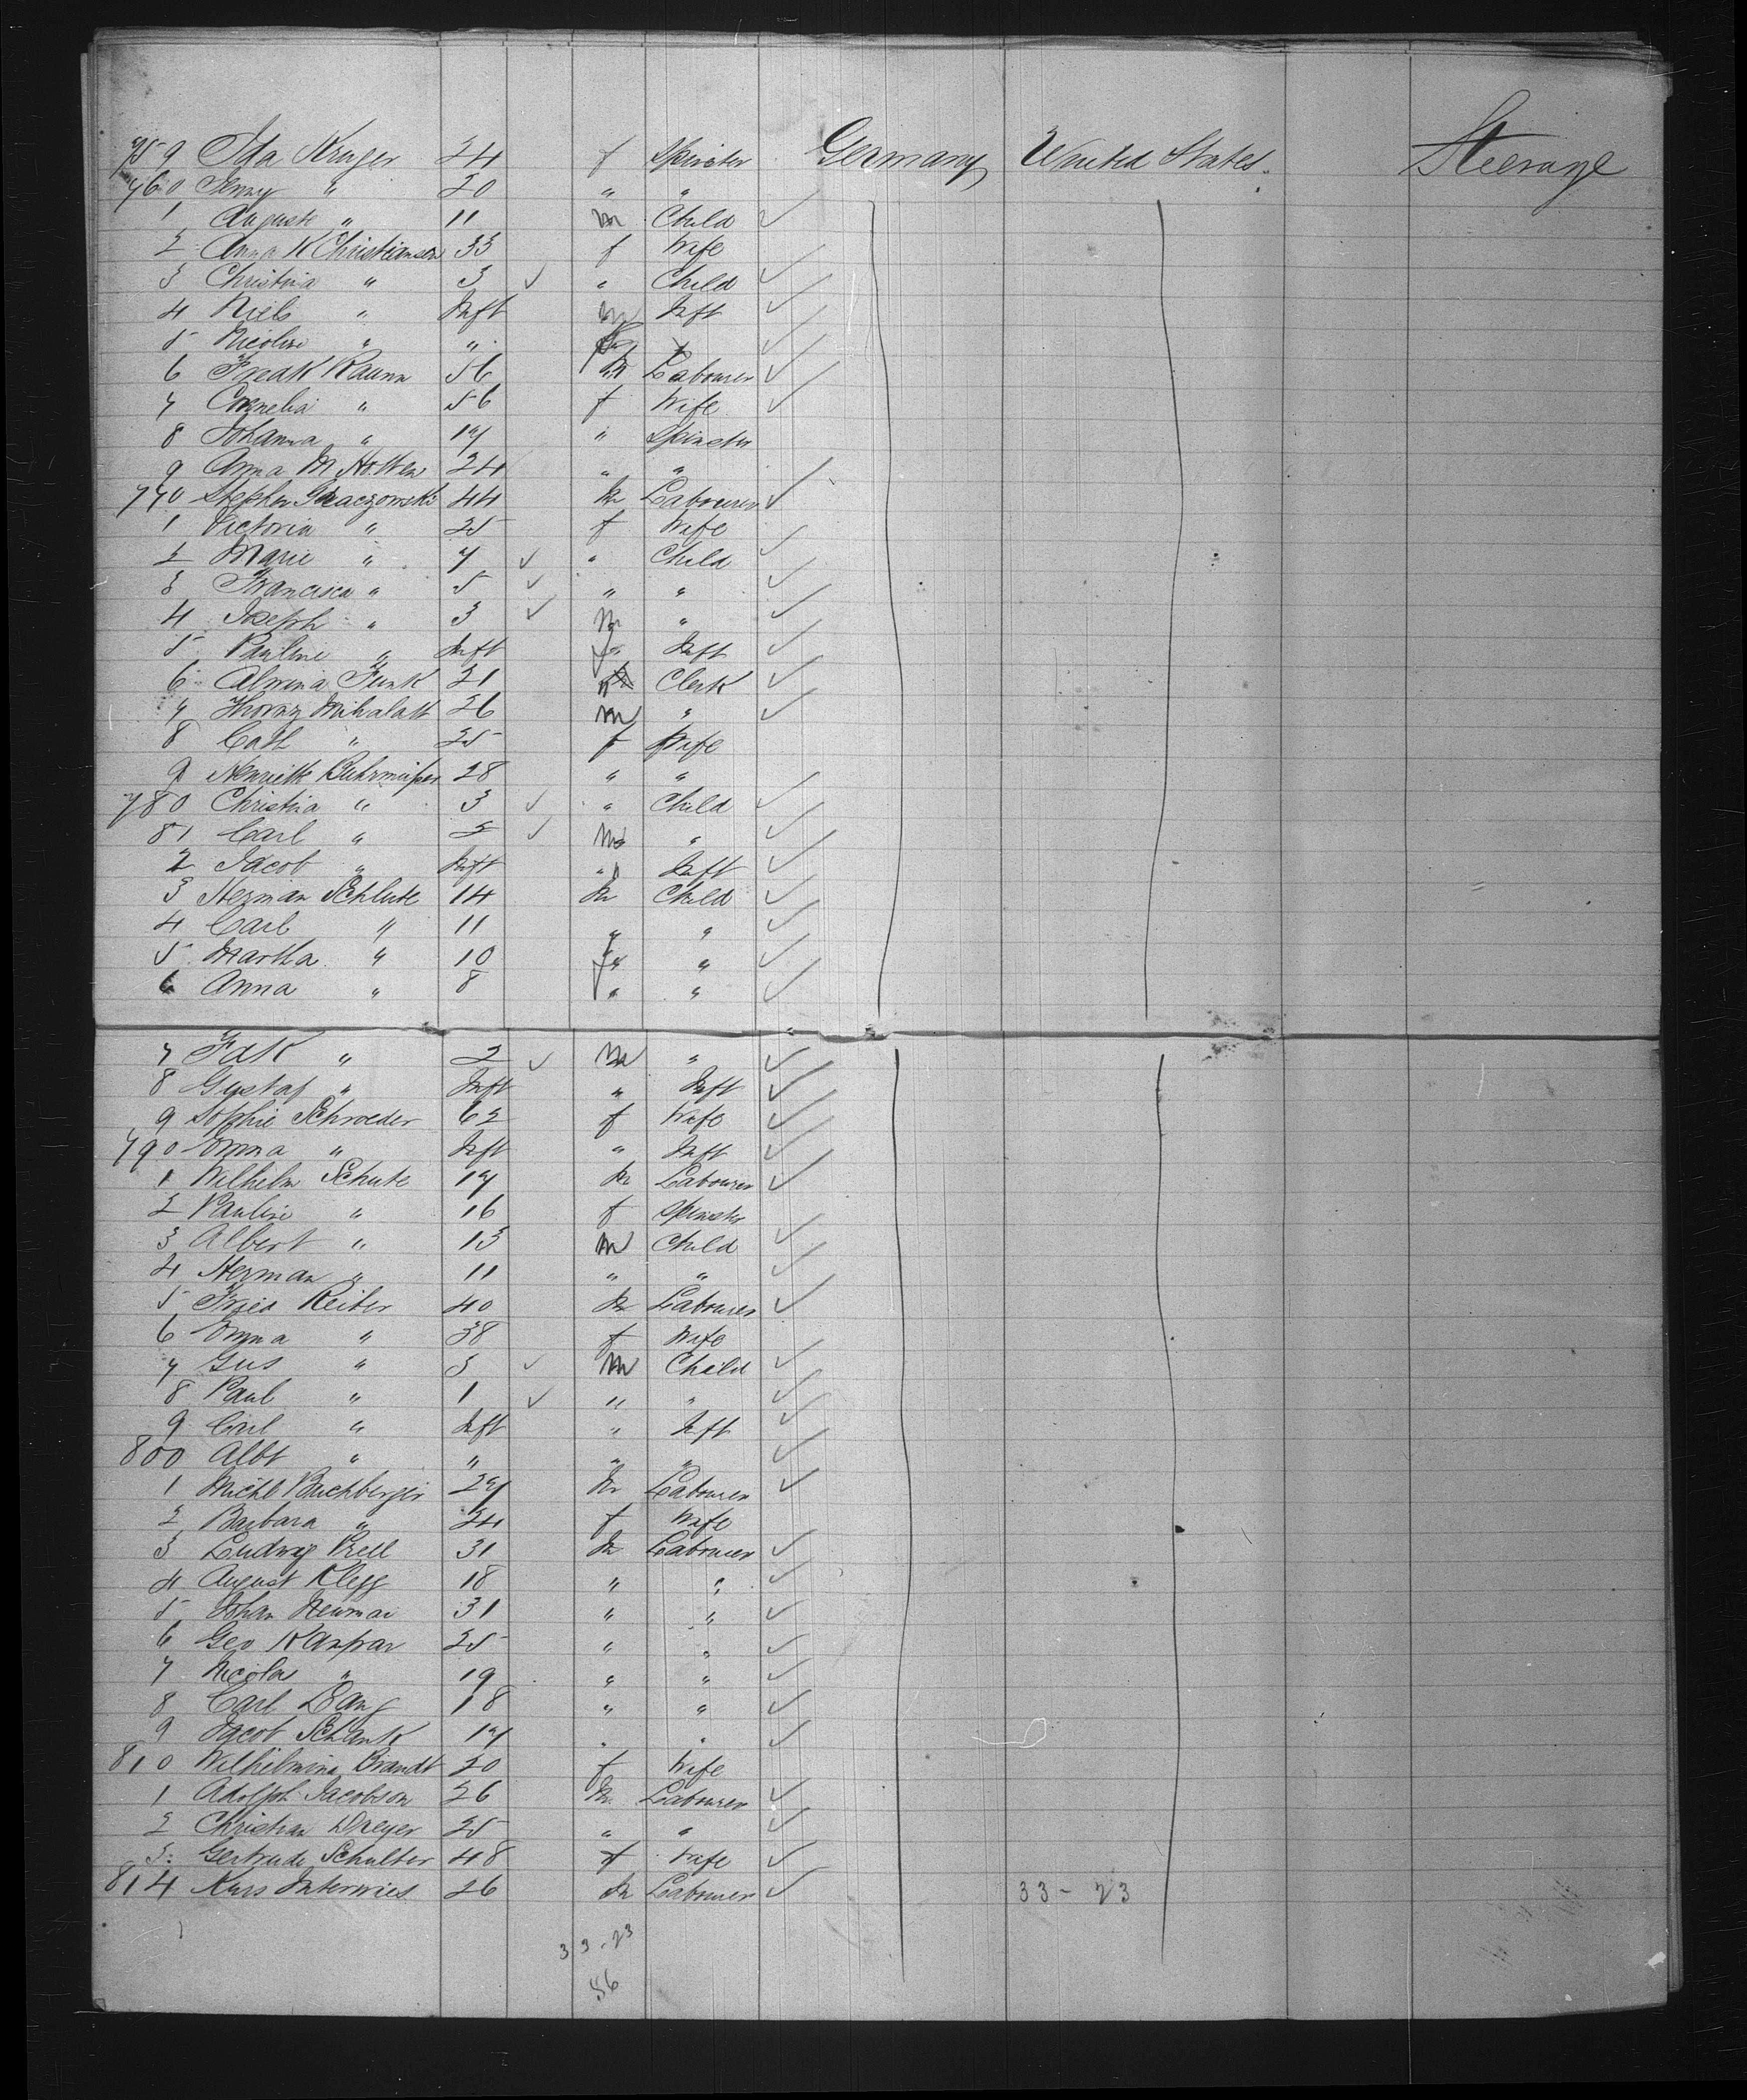 759 Ida Kruger 24 f Spinster Germany United States. Steerage
760 Jenny " 20 " "
1 Auguste " 11 m Child ✓
2 Anna K Christiansen 33 f Wife
3 Christina " 3 ✓ " Child ✓
4 Niels " Inft m Inft ✓
5 Nicoline " " ✓
6 Fredk Raunn 56 m Labourer ✓
7 Cornelia " 56 f Wife ✓
8 Johanna " 17 " Spinster
9 Anna M Holten 24 " "
770 Stephen 44 m Labourer ✓
1 Victoria " 25 f Wife
2 Marie " 7 ✓ " Child ✓
3 Francisca " 5 ✓ " " ✓
4 Joseph " 3 ✓ m " ✓
5 Pauline " Inft f Inft ✓
6 Alwina Funk 21 Clerk ✓
7 26 m " ✓
8 Cath " 25 f Wife
9 Henriette 28 " "
780 Christina " 3 ✓ " Child ✓
81 Carl " 2 ✓ m " ✓
2 Jacob " Inft " Inft ✓
3 Herman Schlute 14 m Child ✓
4 Carl " 11 " " ✓
5 Martha " 10 f " ✓
6 Anna " 8 " " ✓
7 Fdk " 2 ✓ m " ✓
8 Gustaf " Inft " Inft ✓
9 Sophie Schroeder 62 f Wife ✓
790 Emma " Inft " Inft ✓
1 Wilhelm Schute 17 m Labourer ✓
2 Pauline " 16 f Spinster
3 Albert " 13 m Child ✓
4 Herman " 11 " " ✓
5 Fried Reiter 40 m Labourer ✓
6 Emma " 38 f Wife
7 Gus " 3 ✓ m Child ✓
8 Paul " 1 ✓ " " ✓
9 Carl " Inft " Inft ✓
800 Albt " " " " ✓
1 Michl Buchberger 27 m Labourer ✓
2 Barbara " 24 f Wife
3 Ludwig Prell 31 m Labourer ✓
4 August Klegg 18 " " ✓
5 Johan Neumai 31 " " ✓
6 Geo Kaspar 25 " " ✓
7 Nicolas " 19 " " ✓
8 Carl Lang 18 " " ✓
9 Jacob Schank 17 " " ✓
810 Wilhelmina Brandt 20 f Wife
1 Adolph Jacobson 26 m Labourer ✓
2 Christian Dreyer 25 " " ✓
3 Gertrude Schulter 48 f Wife ✓
814 26 m Labourer ✓ 33-23
33-23
56